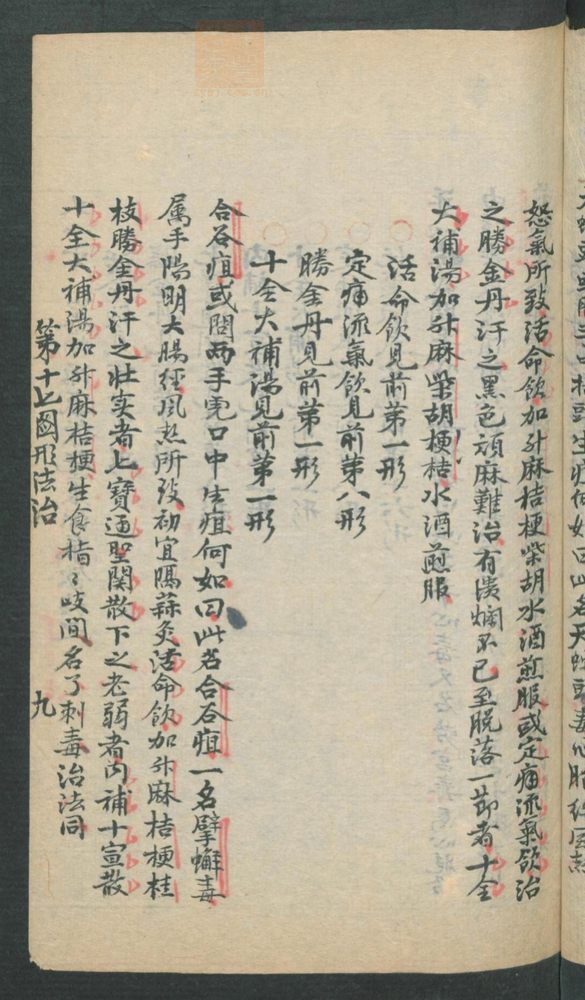 怒氣所致活命飲加升麻桔梗柴胡水酒煎服或定痛流氣飲治
之勝金丹汗之黑色頑麻難治有潰爛不已至脫落一節者十全
大補湯加升麻柴胡梗桔水酒煎服
活命飲見前第一形
定痛流氣飲見前第八形
勝金丹見前第一形
十全大補湯見前第一形
合谷疽或問兩手虎口中生疽何如曰此名合谷疽一名擘蠏毒
属手陽明大腸經風热所致初宜隔蒜灸活命飲加升麻桔梗桂
枝勝金丹汗之壮实者七寶通聖関散下之老弱者内補十宣散
十全大補湯加升麻桔梗生食指〻岐間名了刺毒治法同
第十七圖形法治
九